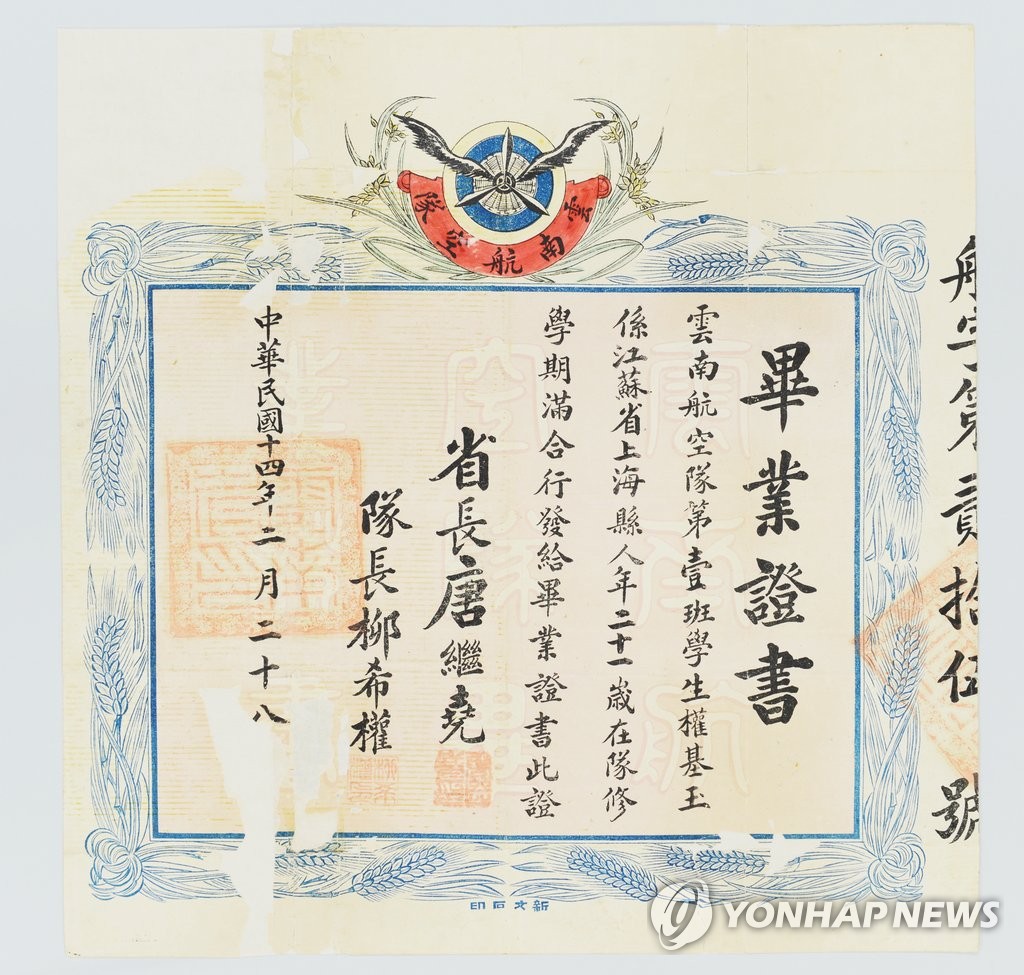 雲南航空隊
航字第貳拾伍號
畢業證書
雲南航空隊第壹班學生權基玉
係江蘇省上海縣人年二十一歲在隊修
學期滿合行發給畢業證書此證
省長唐繼堯
隊長柳希權
中華民國十四年二月二十八
新文石印
YONHAP NEWS